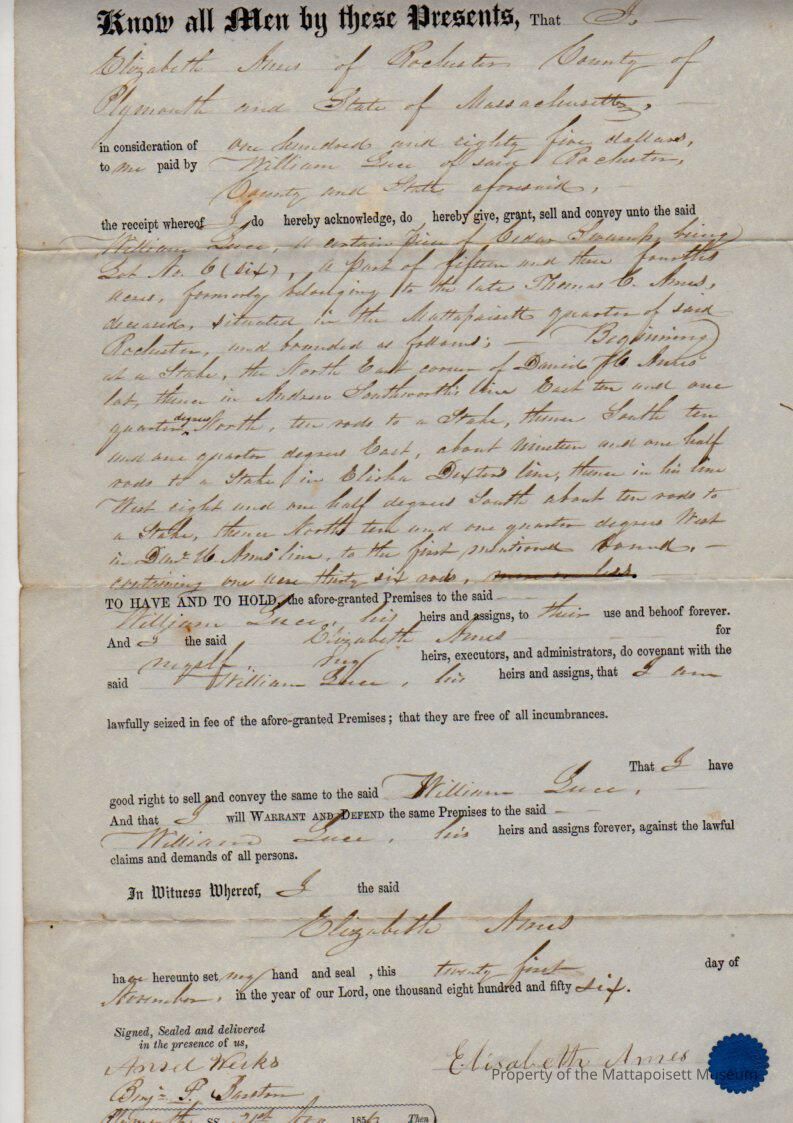 Know all Men by these Presents, That I,
Elizabeth Ames of Rochester County of
Plymouth and State of Massachusetts,
in consideration of one hundred and eighty five dollars,
to me paid by William Luce of said Rochester,
County and State aforesaid,
the receipt whereof I do hereby acknowledge, do hereby give, grant, sell and convey unto the said
William Luce, a certain piece of Cedar Swamp, being
Lot No. 6 (six), a part of fifteen and three fourths
acres, formerly belonging to the late Thomas C. Ames,
deceased, situated in the Mattapoisett quarter of said
Rochester, and bounded as follows; Beginning
at a Stake, the North East corner of David H Ames'
lot, thence in Andrew Southworth's line East ten and one
quarter degrees North, ten rods to a Stake, thence South ten
and one quarter degrees East, about nineteen and one half
rods to a Stake in Elisha Dexters line, thence in his line
West eight and one half degrees South about ten rods to
a Stake, thence North ten and one quarter degrees West
in H Ames line, to the first mentioned bound,
containing one acre thirty six rods, more or less.
TO HAVE AND TO HOLD, the afore-granted Premises to the said
William Luce, his heirs and assigns, to their use and behoof forever.
And I the said Elizabeth Ames for
myself, my heirs, executors, and administrators, do covenant with the
said William Luce, his heirs and assigns, that I am
lawfully seized in fee of the afore-granted Premises; that they are free of all incumbrances.
That I have
good right to sell and convey the same to the said William Luce,
And that I will WARRANT AND DEFEND the same Premises to the said
William Luce, his heirs and assigns forever, against the lawful
claims and demands of all persons.
In Witness Whereof, I the said
Elizabeth Ames
have hereunto set my hand and seal, this twenty first day of
November, in the year of our Lord, one thousand eight hundred and fifty six.
Signed, Sealed and delivered
in the presence of us,
Ansel Weeks
Elizabeth Ames
Property of the Mattapoisett Museum
Benj. F. Barstow
Plymouth SS. 21st Nov 1856 Then